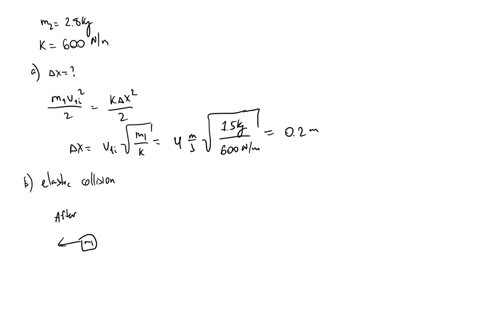 m₂ = 2.8kg
K = 600 N/m
a) Δx = ?
m₁v₁ᵢ²/2 = KΔx²/2
Δx = v₁ᵢ √(m₁/k) = 4 m/s √(1.5kg/600N/m) = 0.2 m
b) elastic collision
After
m₁